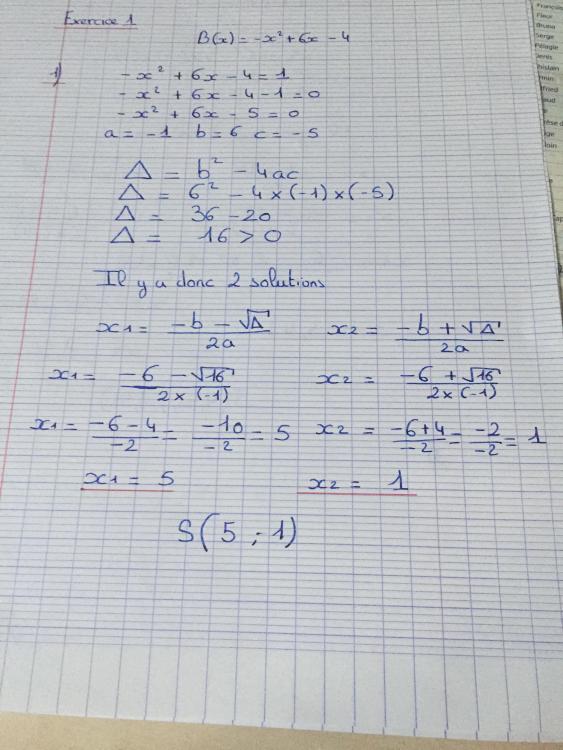 Exercice 1
B(x) = -x² + 6x - 4
1) -x² + 6x - 4 = 1
-x² + 6x - 4 - 1 = 0
-x² + 6x - 5 = 0
a = -1 b = 6 c = -5
Δ = b² - 4ac
Δ = 6² - 4 × (-1) × (-5)
Δ = 36 - 20
Δ = 16 > 0
Il y a donc 2 solutions
x1 = (-b - √Δ)/2a x2 = (-b + √Δ)/2a
x1 = (-6 - √16)/(2 × (-1)) x2 = (-6 + √16)/(2 × (-1))
x1 = (-6 - 4)/-2 = -10/-2 = 5 x2 = (-6 + 4)/-2 = -2/-2 = 1
x1 = 5 x2 = 1
S(5 ; 1)
Fleur
Bruno
Serge